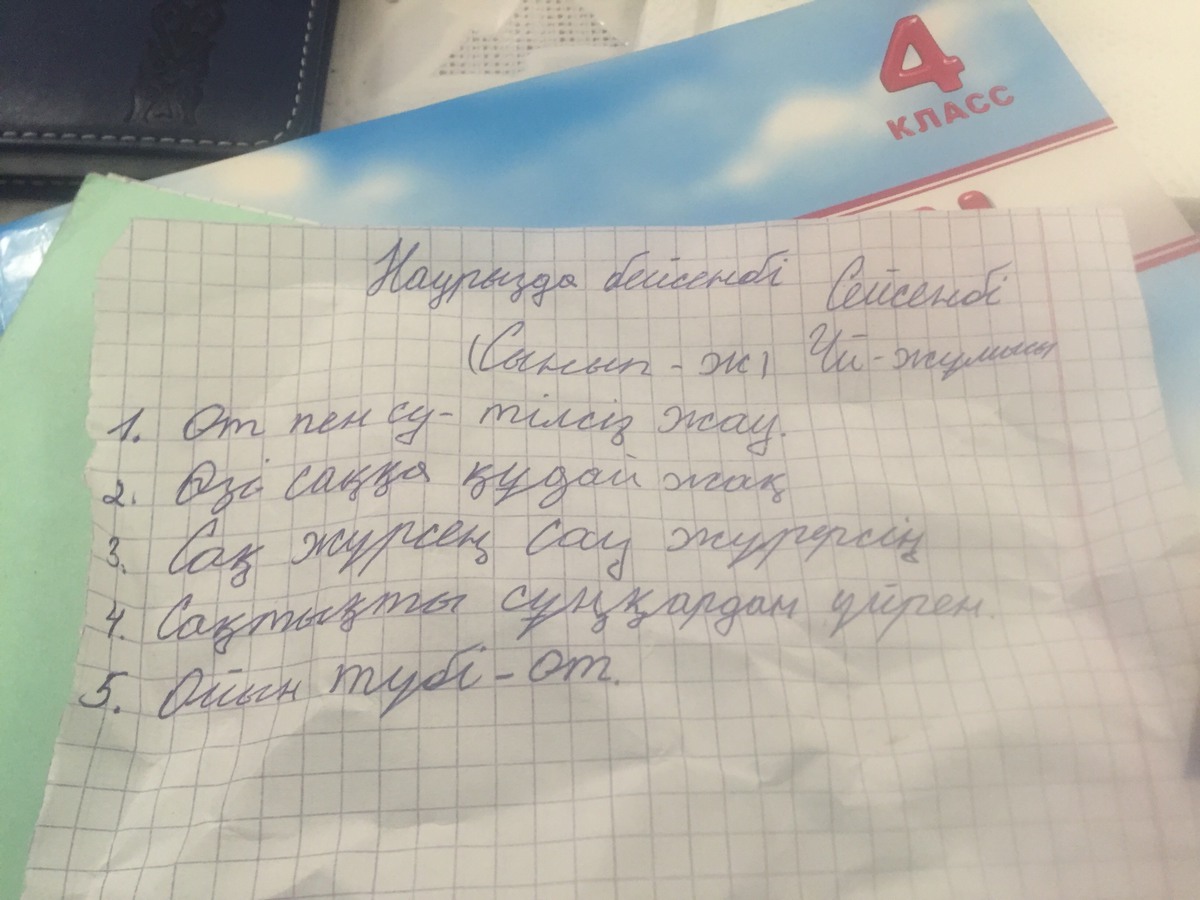 4
КЛАСС
Наурызда бейсенбі Сейсенбі
(Сынып - ж) Үй - жұмысы
1. От пен су - тілсіз жау.
2. Өзі саққа құдай жақ
3. Сақ жүрсең сау жүрерсің
4. Сақтықты сұңқардан үйрен.
5. Ойын түбі - от.